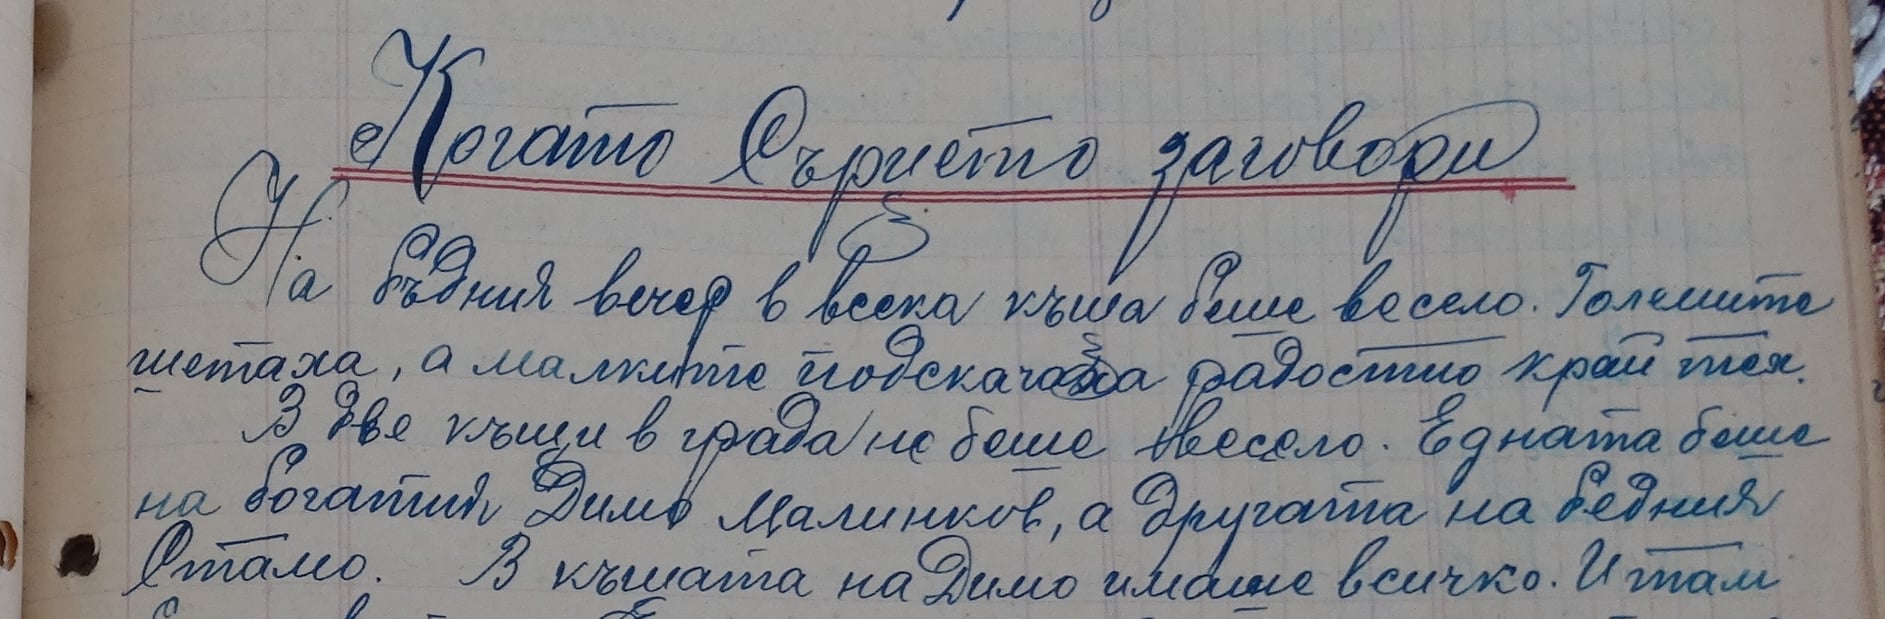 Когато Сърцето заговори
На бъдния вечер в всека къща беше весело. Големите
шетаха, а малките подскачаха радостно край тех.
В две къщи в града не беше весело. Едната беше
на богатия Димо Малинков, а другата на бедния
Стамо. В къщата на Димо имаше всичко. И там